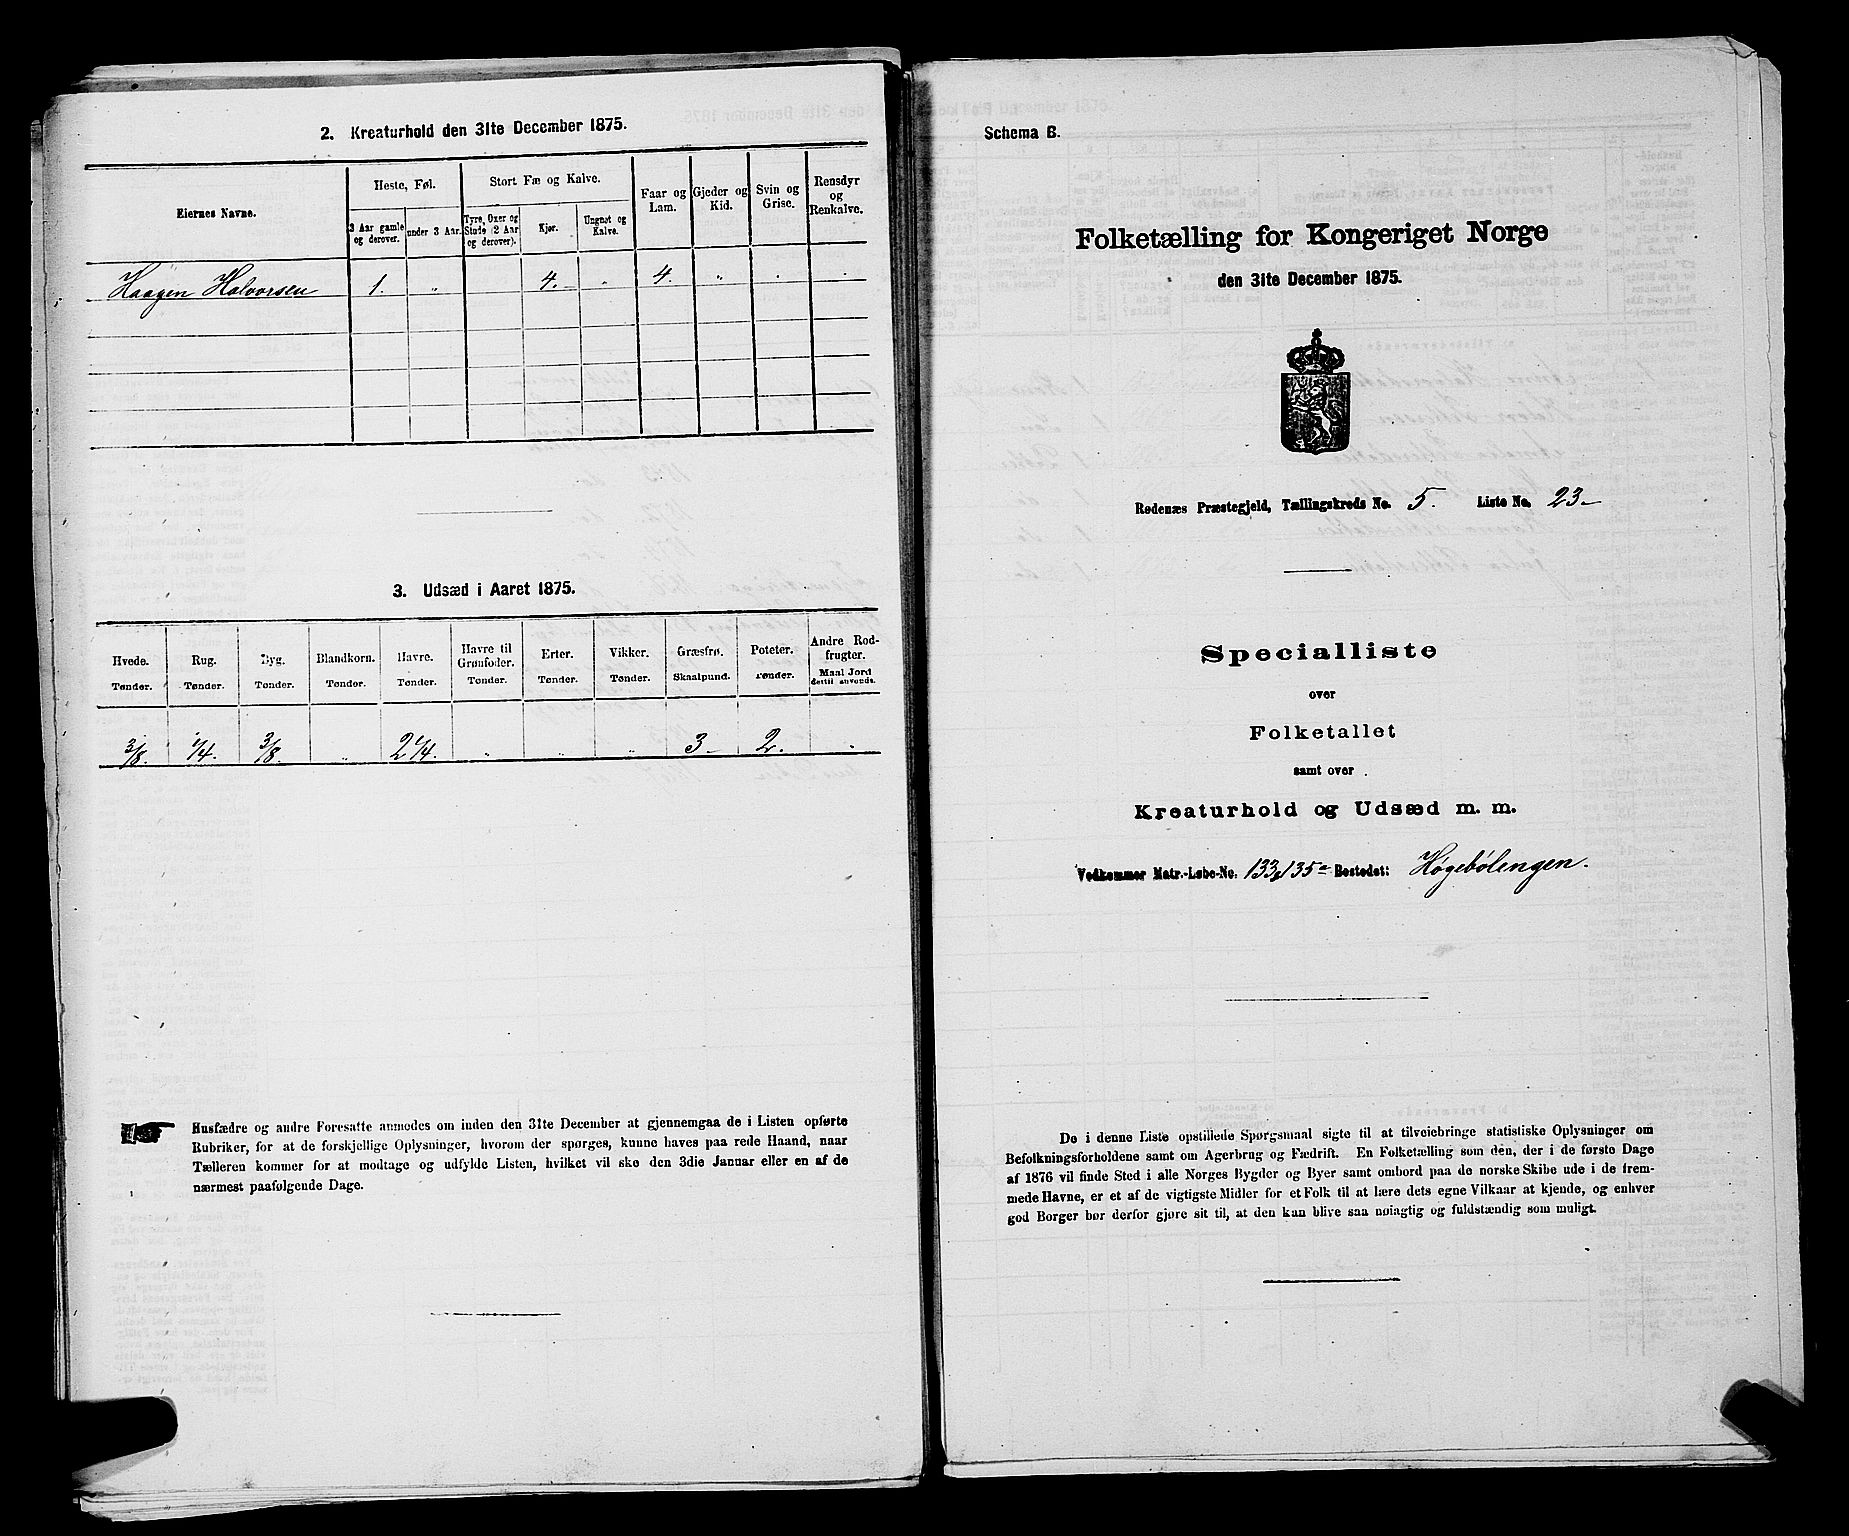 2. Kreaturhold den 31te December 1875.
Eiernes Navne.
Heste, Føl.
3 Aar gamle og derover.
under 3 Aar.
Stort Fæ og Kalve.
Tyre, Oxer og Stude (2 Aar og derover).
Kjør.
Ungnøt og Kalve.
Faar og Lam.
Gjeder og Kid.
Svin og Grise.
Rensdyr og Renkalve.
Haagen Halvorsen 1. „ 4. „ 4. „ . .
3. Udsæd i Aaret 1875.
Hvede. Tønder.
Rug. Tønder.
Byg. Tønder.
Blandkorn. Tønder.
Havre. Tønder.
Havre til Grønfoder. Tønder.
Erter. Tønder.
Vikker. Tønder.
Græsfrø. Skaalpund.
Poteter. Tønder.
Andre Rodfrugter. Maal Jord dertil anvendt.
3/8. 1/4. 3/8. „ 2 1/4. „ „ „ 3 2. „
Husfædre og andre Foresatte anmodes om inden den 31te December at gjennemgaa de i Listen opførte
Rubriker, for at de forskjellige Oplysninger, hvorom der spørges, kunne haves paa rede Haand, naar
Tælleren kommer for at modtage og udfylde Listen, hvilket vil ske den 3die Januar eller en af de
nærmest paafølgende Dage.
Schema B.
Folketælling for Kongeriget Norge
den 31te December 1875.
Rødenæs Præstegjeld, Tællingskreds No. 5. Liste No. 23
Specialliste
over
Folketallet
samt over
Kreaturhold og Udsæd m. m.
Vedkommer Matr.-Løbe-No. 133, 135a Bostedet: Høgebølengen.
De i denne Liste opstillede Spørgsmaal sigte til at tilveiebringe statistiske Oplysninger om
Befolkningsforholdene samt om Agerbrug og Fædrift. En Folketælling som den, der i de første Dage
af 1876 vil finde Sted i alle Norges Bygder og Byer samt ombord paa de norske Skibe ude i de frem-
mede Havne, er et af de vigtigste Midler for et Folk til at lære dets egne Vilkaar at kjende, og enhver
god Borger bør derfor gjøre sit til, at den kan blive saa nøiagtig og fuldstændig som muligt.